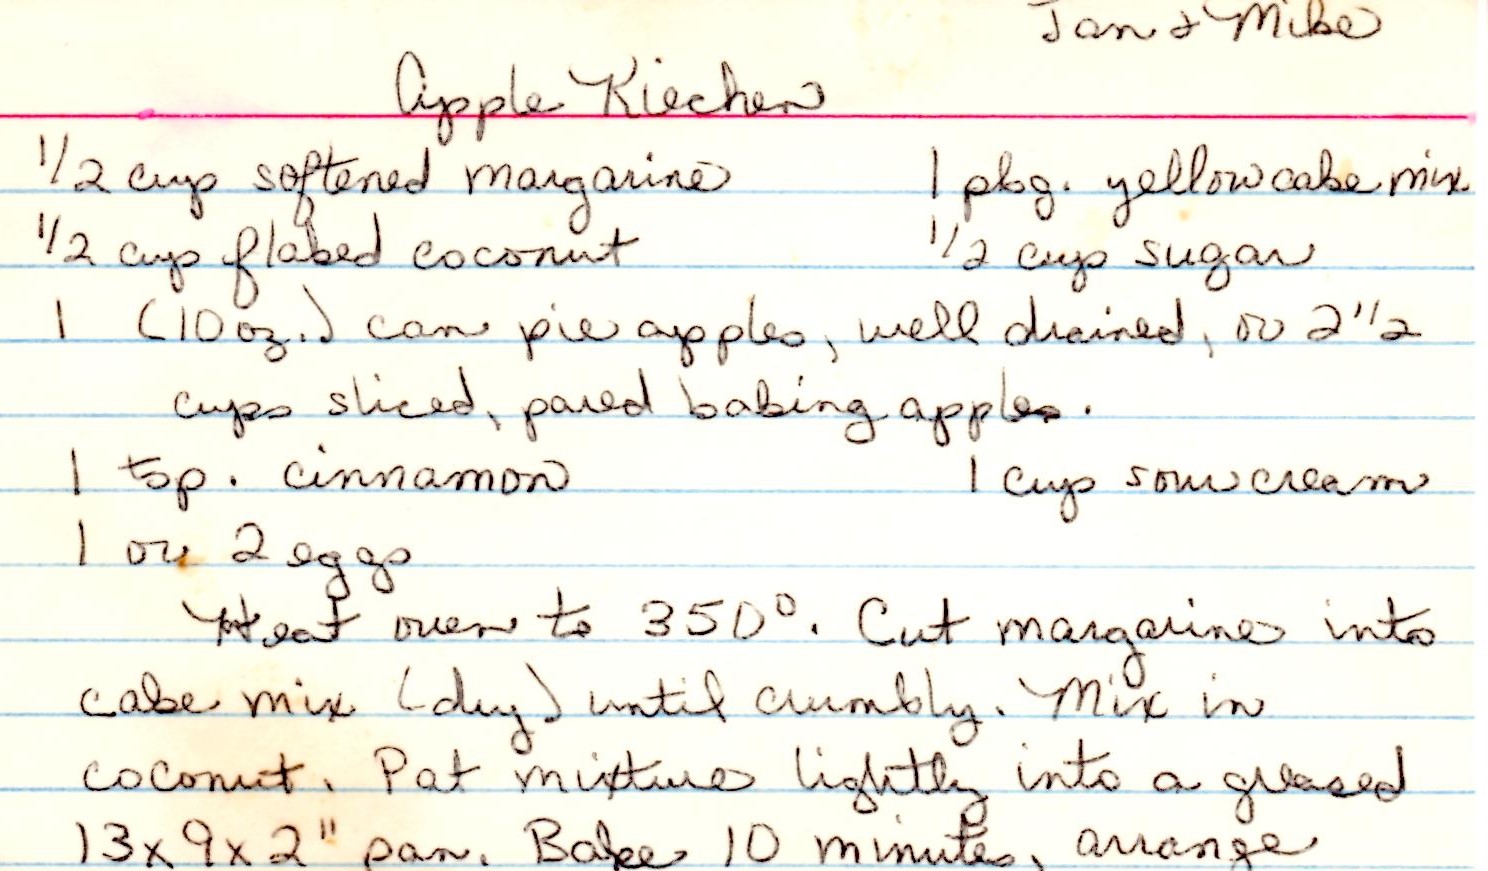 Jan & Mike
Apple Kiechen
1/2 cup softened margarine 1 pkg. yellow cake mix
1/2 cup flaked coconut 1/2 cup sugar
1 (10 oz.) can pie apples, well drained, or 2 1/2
cups sliced, pared baking apples.
1 tsp. cinnamon 1 cup sour cream
1 or 2 eggs
Heat oven to 350°. Cut margarine into
cake mix (dry) until crumbly. Mix in
coconut. Pat mixture lightly into a greased
13x9x2" pan. Bake 10 minutes, arrange